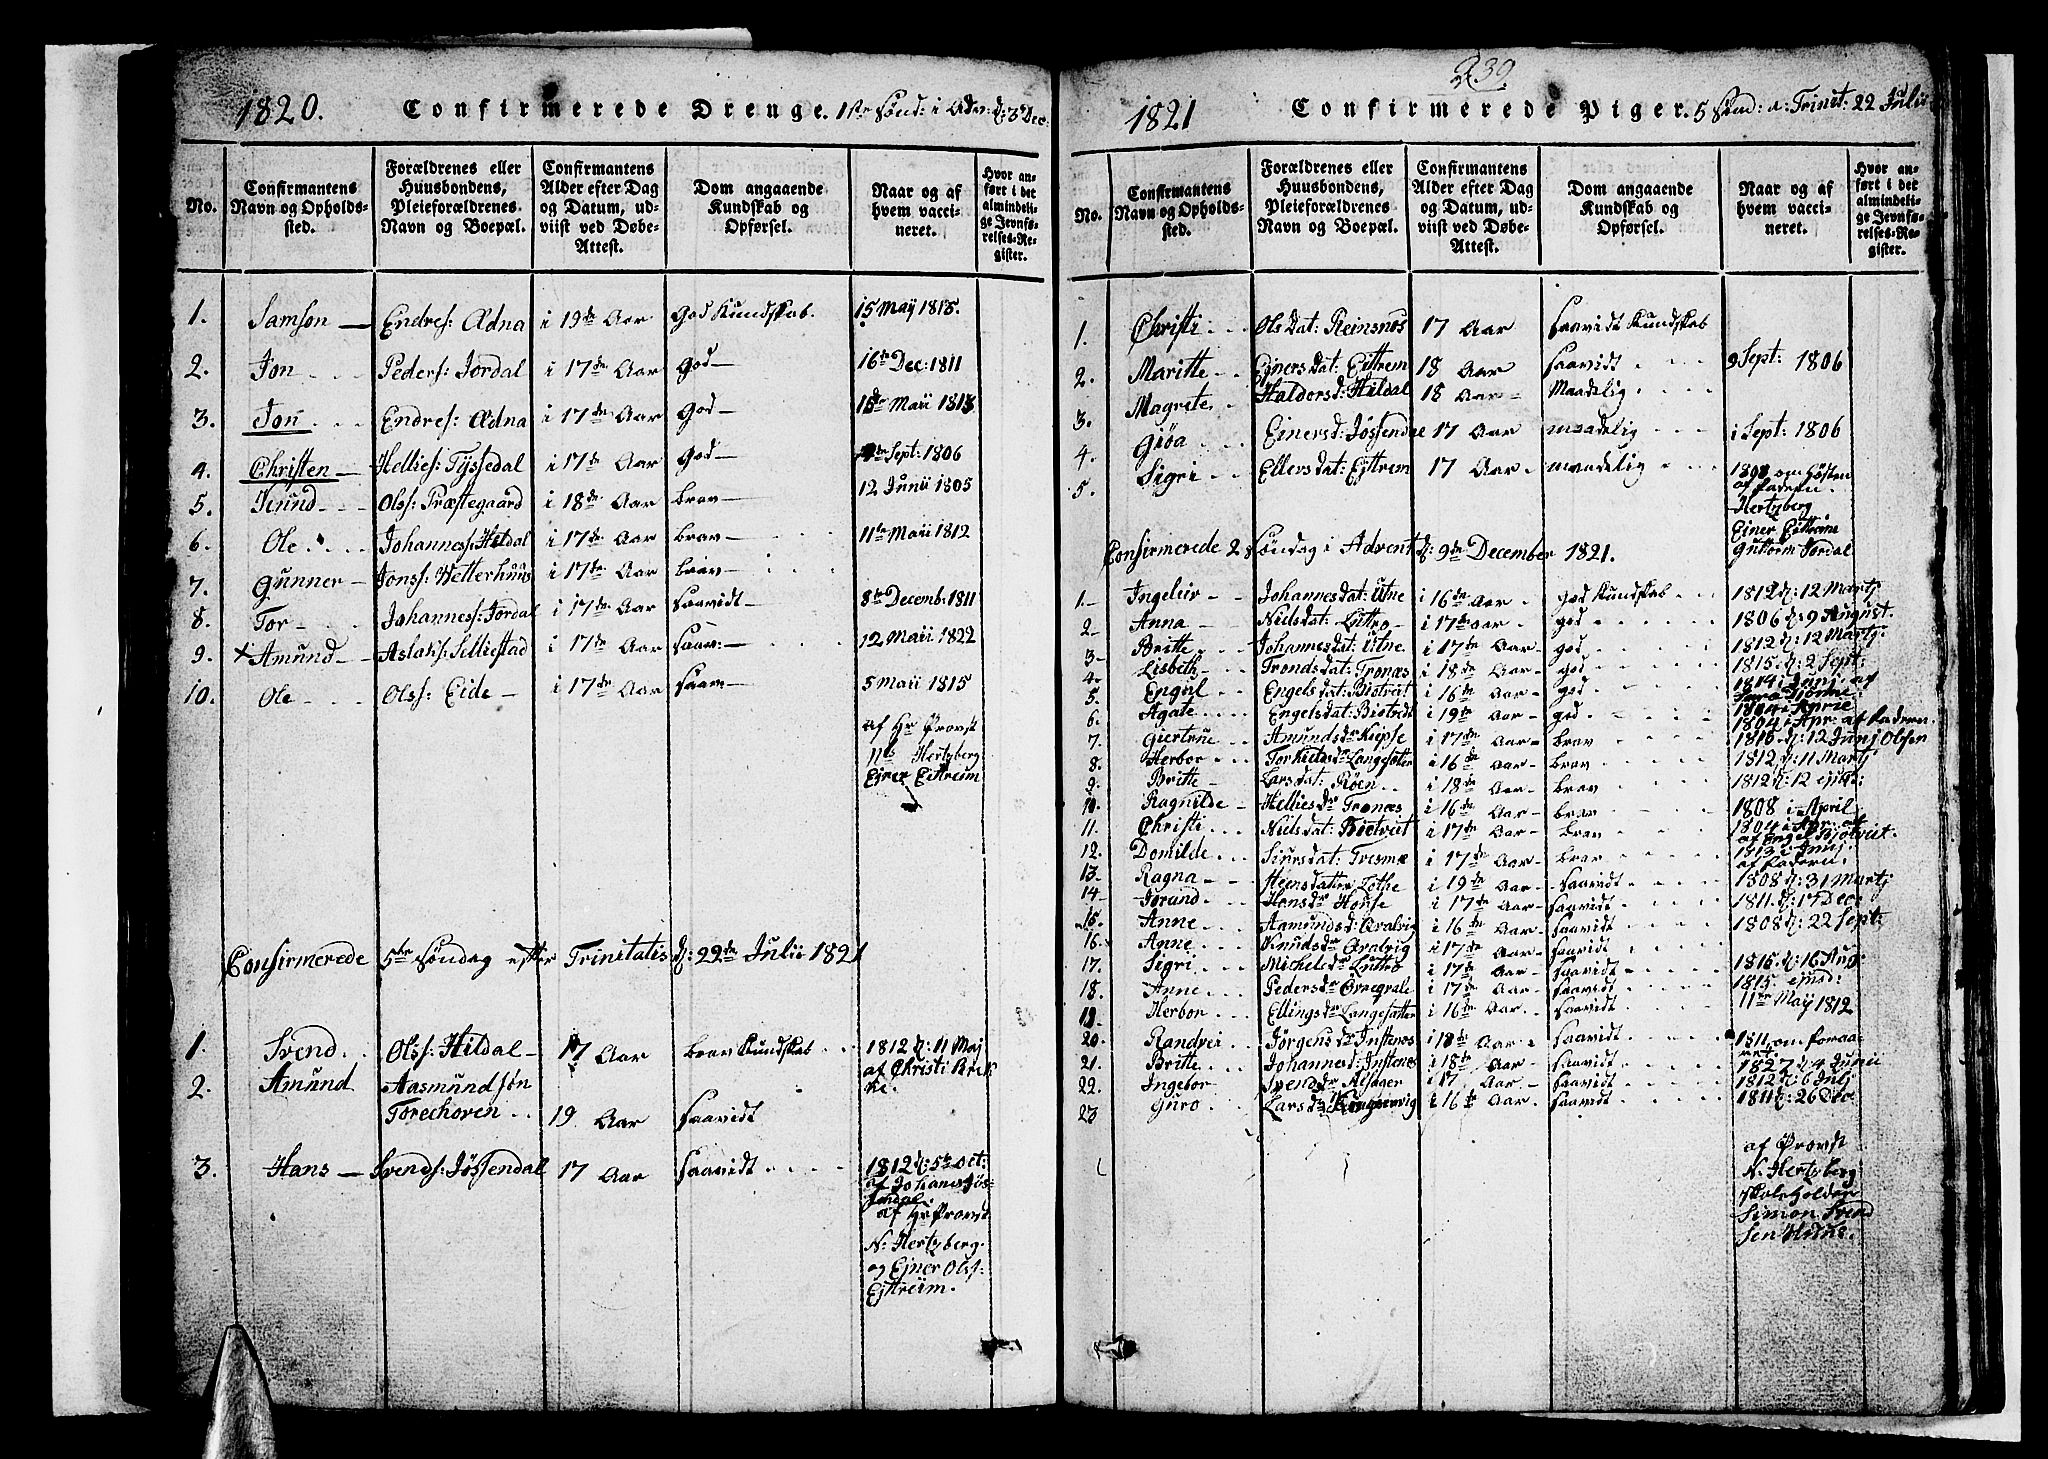 1820. Confirmerede Drenge. 1ste Sønd: i Adv: d: 3 Dec:
No.
Confirmantens Navn og Opholds-sted.
Forældrenes eller Huusbondens, Pleieforældrenes Navn og Boepæl.
Confirmantens Alder efter Dag og Datum, ud-viist ved Døbe-Attest.
Dom angaaende Kundskab og Opførsel.
Naar og af hvem vacci-neret.
Hvor an-ført i det almindeli-ge Jevnfø-relses-Re-gister.
1. Samson — Endres: Ædna i 19de Aar god Kundskab. 15 Maÿ 1815.
2. Jon - - - Peders: Jordal i 17de Aar god — 16te Dec: 1811
3. Jon - - - Endres: Ædna i 17de Aar god — Maii 1813
4. Christen — Hellies: Tÿssedal i 17de Aar god — Sept: 1806
5. Olss: Præstegaard i 18de Aar brav — 12 Junii 1805
6. Ole - - - Johanness: Hildal i 17de Aar brav — 11te Maii 1812
7. Gunner — Jonss: Wetterhuus i 17de Aar brav —
8. Tor — Johanness: Jordal i 17de Aar saavidt — 8te Decemb: 1811
9. x Amund — Aslaks: Selliestad i 17de Aar saav: — 12 Maii 1822
10. Ole - - - Olss: Eide — i 17de Aar saav — 5 Maii 1815
af Hr Provst
Ns Hertzberg
Ejner Eittreim
Confirmerede 5te Søndag efter Trinitatis d: 22de Julii 1821
1. Svend. Olss: Hildal — 17 Aar brav Kundskab 1812 d: 11 Maj
af Christi
2. Amund Aasmundsøn
Torechoven 19 Aar saavidt
3. Hans — Svends: Jössendal 17 Aar saavidt 1812 d: 5te Oct:
af Johannes Jös-
sendal
af Hr Provst
N: Hertzberg
og Ejner Olss:
Ejttreim.
239
1821 Confirmerede Piger. 5 Sønd: a: Trinit: 22 Julii
No.
Confirmantens Navn og Opholds-sted.
Forældrenes eller Huusbondens, Pleieforældrenes Navn og Boepæl.
Confirmantens Alder efter Dag og Datum, ud-viist ved Døbe-Attest.
Dom angaaende Kundskab og Opførsel.
Naar og af hvem vacci-neret.
Hvor an-ført i det almindeli-ge Jevnfø-relses-Re-gister.
1. Christi - - Ols Dat: Reinsnos 17 Aar saavidt Kundskab
2. Maritte - Ejners Dat: Eittrem 18 Aar saavidt 9 Sept: 1806
3. Magrete - Haldorsd: Hildal 18 Aar - Maadelig
4. Giøa Einersd: Jøssendal 17 Aar maadelig i Sept: 1806
5. Sigri Ellersdat: Ejttrem 17 Aar - maadelig 1808 om Høsten
af Faderen.
Hertzberg
Einer Eittreim
Guttorm Jordal
Confirmerede 2. Søndag i Advent d: 9de December 1821.
1. Ingeleiv - - Johannesdat: Utne i 16de Aar god Kundskab 1812 d: 12 Martj
2. Anna - Nielsdat: Luttro i 17de Aar god 1806 d: 9 August.
3. Britte Johannesdat: Utne i 17de Aar god 1812 d: 12 Martj:
4. Lisbeth Trondsdat: Tronæs i 18de Aar god 1815 d: 2 Sept:
5. Engiil Engelsdat: Biotveit i 16de Aar god 1814 i Junj af
6. Agate Engelsdat: Biotvedt i 19de Aar god 1804 i Aprie
7. Giertrue Amundsdr Kiepse i 17de Aar brav 1804 i Apr: af Faderen.
8. Herbor Torkieldsdr Langesæter i 16de Aar brav 1815 d: 12 Junj Olsen
9. Britte Larsdat: Røen i 18de Aar brav 1812 d: 11 Martj
10. Ragnilde Helliesdr Tronæs i 16de Aar brav 1812 d: 12 ejsd:
11. Christi Nielsdat: Biotveit i 17de Aar brav 1808 i April
12. Domilde Siursdat: i 17de Aar brav 1804 i Apr: af
af Engel Bjotveit.
13. Ragna Heensdatter Lothe i 19de Aar saavidt 1813 i Junj
af Faderen
14. Jorund Hansdr House i 17de Aar saavidt 1808 d: 31 Martj
15. Anne Aamundsd: Qvalvig i 16de Aar saavidt 1811. d: 17 Dec:
16. Anne Knudsdr Qvalvig i 17de Aar saavidt 1808 d: 22 Sept:
17. Sigri Michelsdr Luttro i 17de Aar saavidt 1815 d: 16 Aug:
18. Anne Pedersdr i 17de Aar saavidt 1815 ejusd:
19. Herbor Ellingsdr Langesætter i 16de Aar saavidt 11te Maÿ 1812
20. Randvei Jørgensdr Instenæs i 18de Aar saavidt 1811. om foraa-
ret.
21. Britte Johannesd: Instenæs i 18de Aar saavidt 1827 d: 4 Junii
22. Ingebor Svendsdr Alsager i 17 Aar saavidt 1812 d: 6 Julj
23 Guro Larsdr i 16de Aar saavidt 1811 d: 26 Dec:
af Provst
N: Hertzberg
skoleholder
Simon Svend
sen Huus.